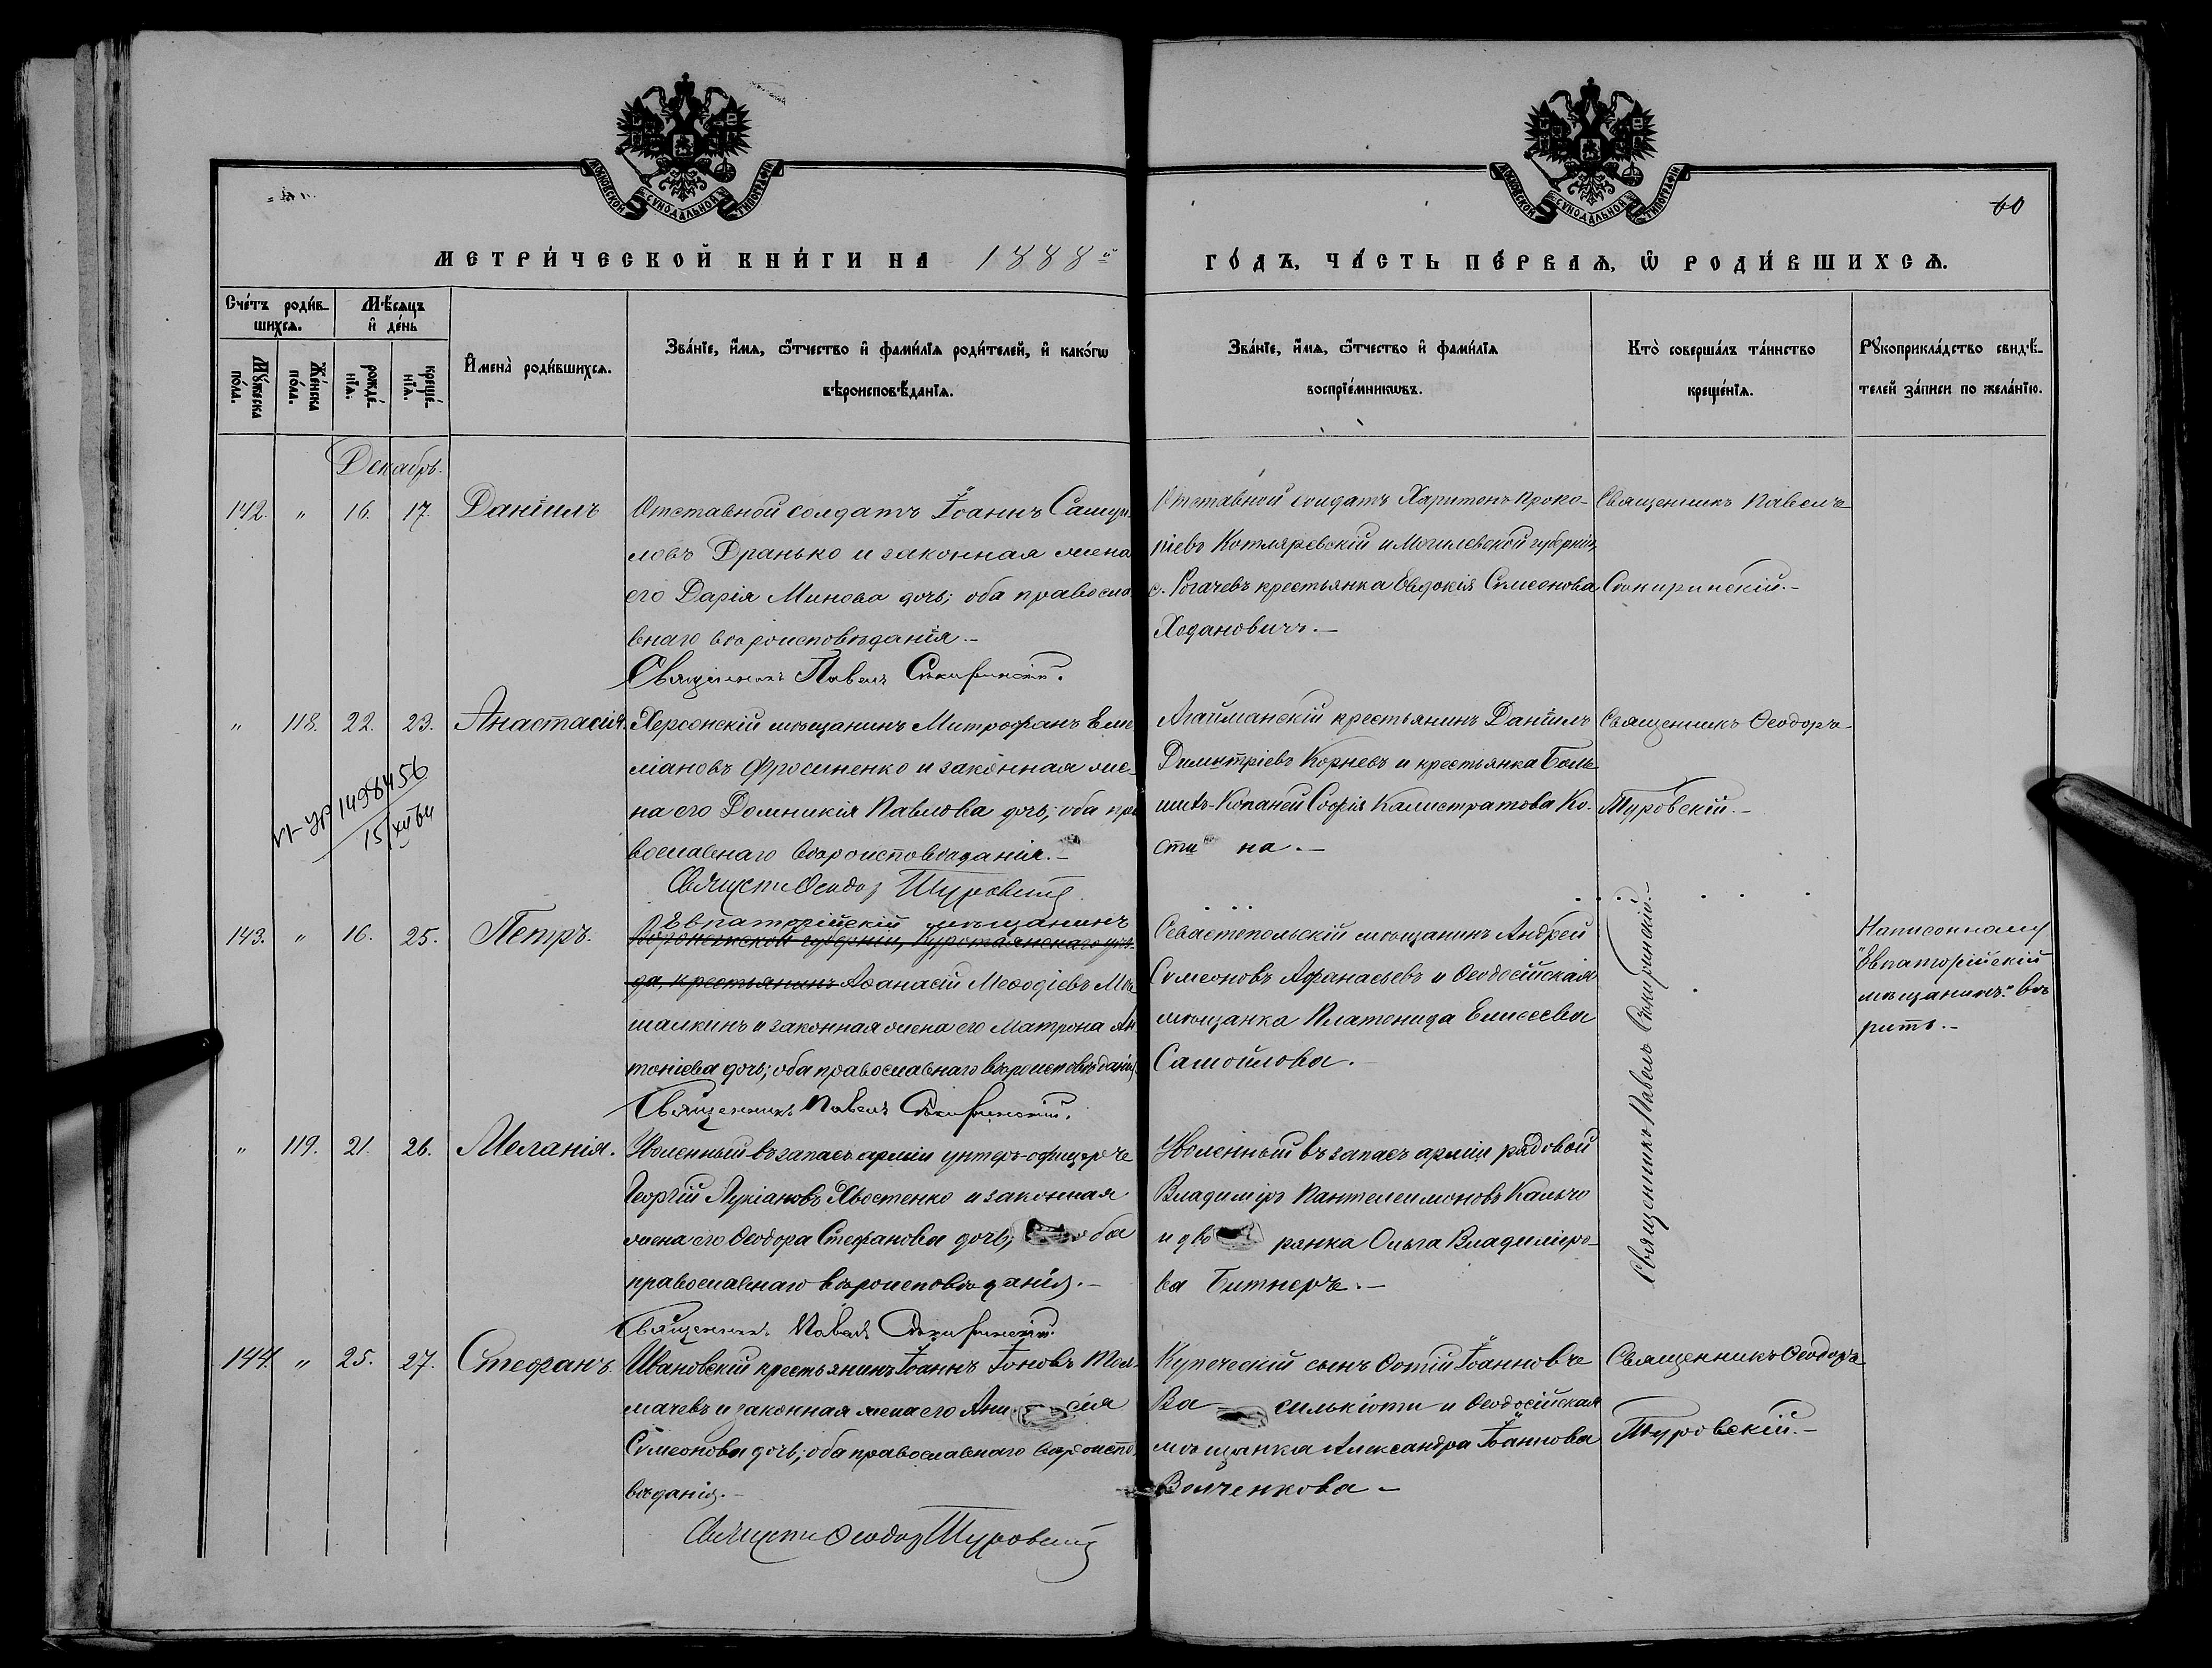 МОСКОВСКОЙ СУНОДАЛЬНОЙ ТИПОГРАФІИ
МОСКОВСКОЙ СУНОДАЛЬНОЙ ТИПОГРАФІИ
60
МЕТРИ́ЧЕСКОЙ КНИ́ГИ НА 1888й
ГО́ДЪ, ЧА́СТЬ ПЕ́РВАѦ, Ѡ҆ РОДИ́ВШИХСѦ.
Сче́тъ роди́в-
шихсѧ.
Мѣ́сѧцъ
и҆ де́нь
Мꙋ́жеска по́ла.
Же́нска по́ла.
рожде́-
нїѧ.
креще́-
нїѧ.
И҆мена̀ роди́вшихсѧ.
Зва́нїе, и҆́мѧ, ѻ҆́тчество и҆ фами́лїѧ роди́телей, и҆ како́гѡ
вѣроисповѣ́данїѧ.
Зва́нїе, и҆́мѧ, ѻ҆́тчество и҆ фами́лїѧ
воспрїе́мникѡвъ.
Кто̀ соверша́лъ та́инство
креще́нїѧ.
Рꙋкоприкла́дство свидѣ́-
телей за́писи по жела́нїю.
Декабрь.
142. " 16. 17. Даніилъ
Отставной солдатъ Іоаннъ Самуи-
ловъ Дранько и законная жена
его Дарія Минова дочь; оба правосла
внаго вѣроисповѣданія.-
Священникъ Павелъ Сокиринскій.
Отставной солдатъ Харитонъ Проко-
піевъ Котляревскій и Могилевской губерніи,
с. Рогачевъ крестьянка Евдокія Симеонова
Ходанович.-
Священникъ Павелъ
Сокиринскій.-
" 118. 22. 23. Анастасія.
Херсонскій мѣщанинъ Митрофанъ Еми
ліановъ Фросиненко и законная же-
на его Домникія Павлова дочь; оба пра
вославнаго вѣроисповѣданія.-
Священ Ѳеодор Туровскій
Агайманскій крестьянинъ Даніилъ
Димитріевъ Корневъ и крестьянка Боль
шихъ-Копаней Софія Калистратова Ко-
сти на.-
Священникъ Ѳеодоръ
Туровскій.-
1498456
15/XII 64
143. " 16. 25. Петръ.
Евпаторійскій мѣщанинъ
Воронежской губерніи, Куротоянскаго уѣз-
да, крестьянинъ Аѳанасій Меѳодіевъ Мо
шалкинъ и законная жена его Матрона Ан
тоніева дочь; оба православнаго вѣроисповѣданія
Священникъ Павелъ Сокиринскій.
Севастопольскій мѣщанинъ Андрей
Симеоновъ Афанасьевъ и Ѳеодосійская
мѣщанка Платонида Елисеева
Самойлова.-
Священникъ Павелъ Сокиринскій.-
Написанному
"Евпаторійскій
мѣщанинъ" вѣ
рить.-
" 119. 21. 26. Меланія.
Уволенный въ запасъ арміи унтеръ-офицеръ
Георгій Лукіановъ Хвостенко и законная
жена его Ѳеодора Стефанова дочь; оба
православнаго вѣроисповѣданія.-
Священникъ Павелъ Сокиринскій.
Уволенный въ запасъ арміи рядовой
Владиміръ Пантелеимоновъ Кальчо
и дво рянка Ольга Владиміро-
ва Битнеръ.-
144. " 25. 27. Стефанъ.
Ивановскій крестьянинъ Іоаннъ Іоновъ Тол-
мачевъ и законная жена его Ани сія
Симеонова дочь; оба православнаго вѣроиспо
вѣданія.-
Священ Ѳеодор Туровскій
Купеческій сынъ Фотій Іоанновъ
Ва силькіоти и Ѳеодосійская
мѣщанка Александра Іоаннова
Волченкова -
Священникъ Ѳеодоръ
Туровскій.-